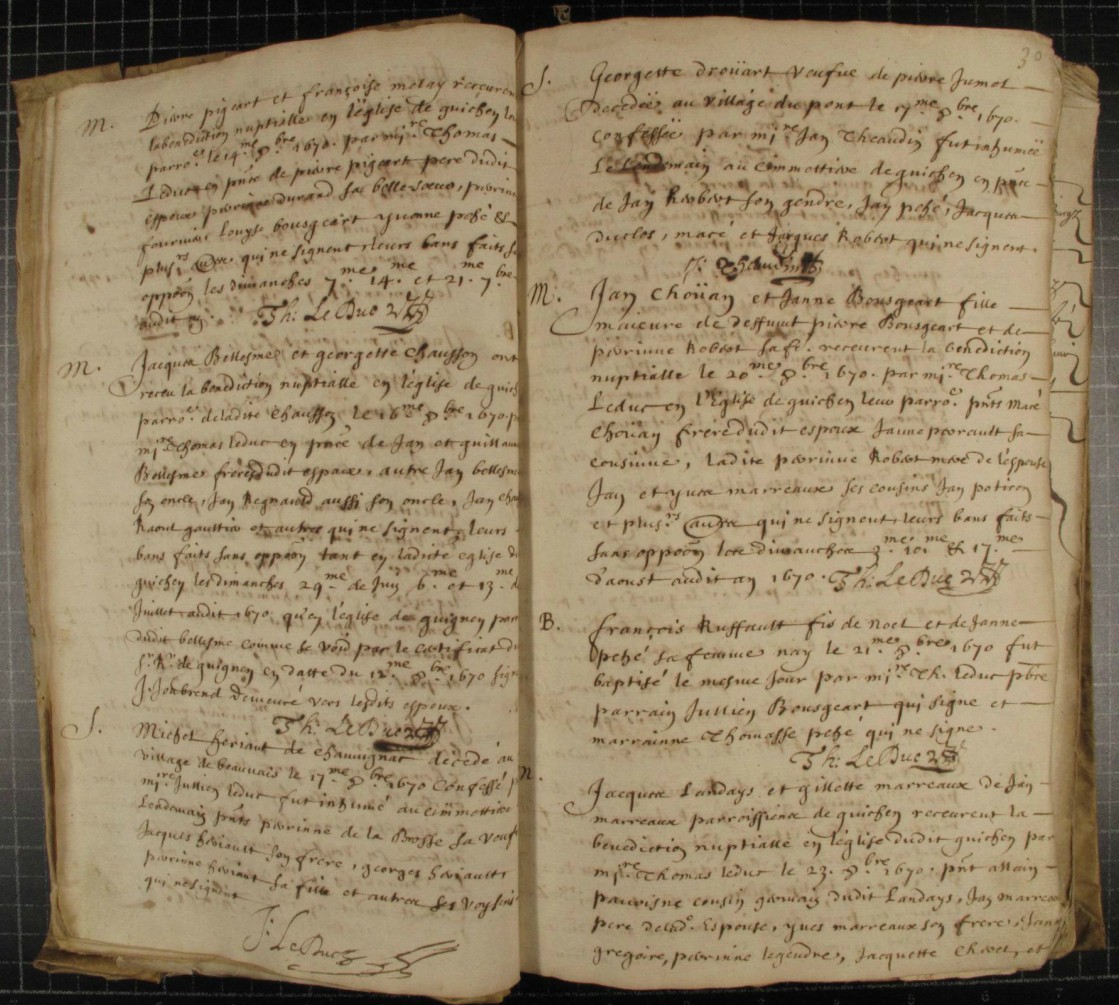 M. Pierre pigeart et françoise molay receurent
la benediction nuptialle en l'église de guichen
parro.^e le 14^me 8^bre 1670. par mi^re Thomas
Leduc en p^nce de pierre pigeart pere dudit
espoux perrine durand sa belle soeur, perrine
fourmis Louyse bousgeart yvonne pehé et
plus^rs autres qui ne signent leurs bans faits
oppoon les dimanches 7^me 14.^me et 21.^me 7.^bre
audit an. Th: LeDuc
M. Jacques Bellesme et georgette Chausson ont
receu la benediction nuptialle en l'église de guich
parro.^e deladite Chausson le 16^me 8^bre 1670. p
mi^re Thomas leduc en p^nce de Jan et guillaume
Bellesme frères dudit espoux, autre Jan bellesme
son oncle, Jan Regnauld aussi son oncle, Jan
Raoul gaultier et autres qui ne signent, leurs
bans faits sans oppoon tant en ladite eglise de
guichen les dimanches 29^me de Juin 6.^me et 13.^me d
Juillet audit 1670. qu'en l'église de guignen par
dudit bellesme comme se void par le certificat du
s^r R^r de guignen en datte du 12^me 8^bre 1670 sign
J. Jonbrend demeuré vers lesdits espoux.
Th: LeDuc
S. Michel heriaut de Chauvignac décédé au
village de beauvais le 17^me 8^bre 1670 Confessé p
mi^re Jullien leduc fut inhumé au cimmottiere
Lendemain p^nts perrinne de la Brosse sa veufve
Jacques heriault son frere, georges heriault
perrine heriaut sa fille et autres ses voysins
qui ne signent
J: LeDuc
30
S. Georgette drouart veufue de pierre Jumel
decedée au village du pont le 17^me 8^bre 1670.
confessée par mi^re Jan Theaudin fut inhumée
Le Lendemain au cimmottiere de guichen en p^nce
de Jan Robert son gendre, Jan pehé, Jacques
duclos, macé et Jacques Robert qui ne signent.
J: Theaudin
M. Jan Choüan et Janne Bousgeart fille
maieure de deffunt pierre Bousgeart et de
perrinne Robert sa fe. receurent la benediction
nuptialle le 20^me 8^bre 1670. par mi^re Thomas
Leduc en l'Eglise de guichen leur parro^e. p^nts macé
Choüan frere dudit espoux Janne perrault sa
cousinne, ladite perrinne Robert mere de l'espouse
Jan et yves marreaux ses cousins Jan potiron
et plus^rs autres qui ne signent, leurs bans faits
sans oppoon les dimanches 3.^me 10.^me et 17.^me
d'aoust audit an 1670. Th: LeDuc
B. françois Ruffault fis de noel et de Janne
pehé sa femme nay le 21.^me 8^bre 1670 fut
baptisé le mesme Jour par mi^re Th. leduc pbre
parrain Jullien Bousgeart qui signe et
marrainne Thomasse pehé qui ne signe.
Th: LeDuc
M. Jacques Landays et gillette marreaux de Jan
marreaux parroissiens de guichen receurent la
benediction nuptialle en l'église dudit guichen par
mi^re Thomas leduc le 23. 8^bre 1670. p^nt allain
pauvisne cousin germain dudit Landays, Jan marreau
pere delad^e. Espouse, yves marreaux son frere, Janne
gregoire, perrinne legendre, Jacquette Chovel, et